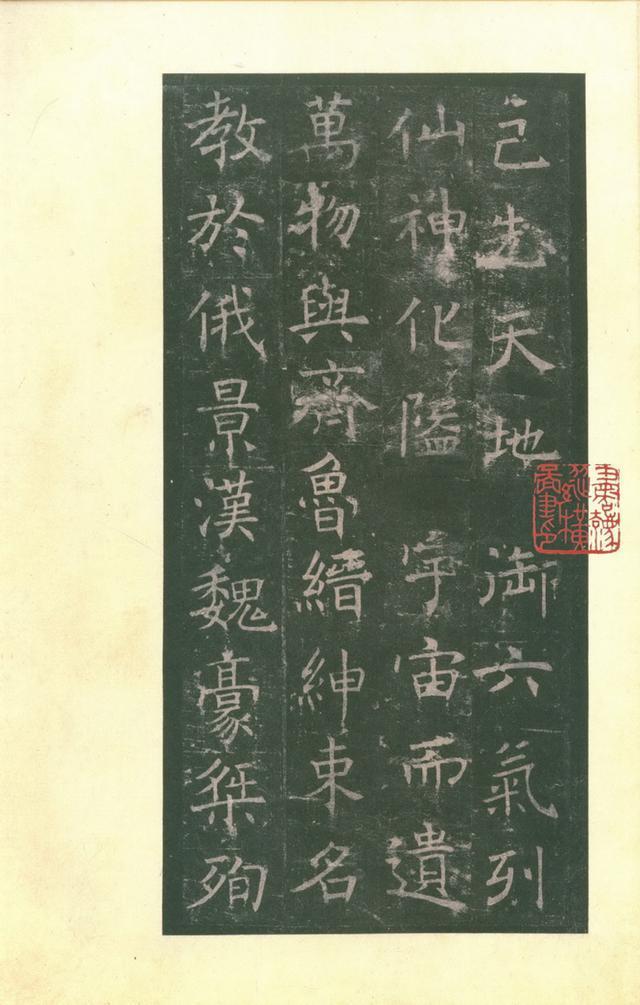 己先天地御六氣列
仙神化隘宇宙而遺
萬物與齊魯縉紳束名
教於俄景漢魏豪桀殉